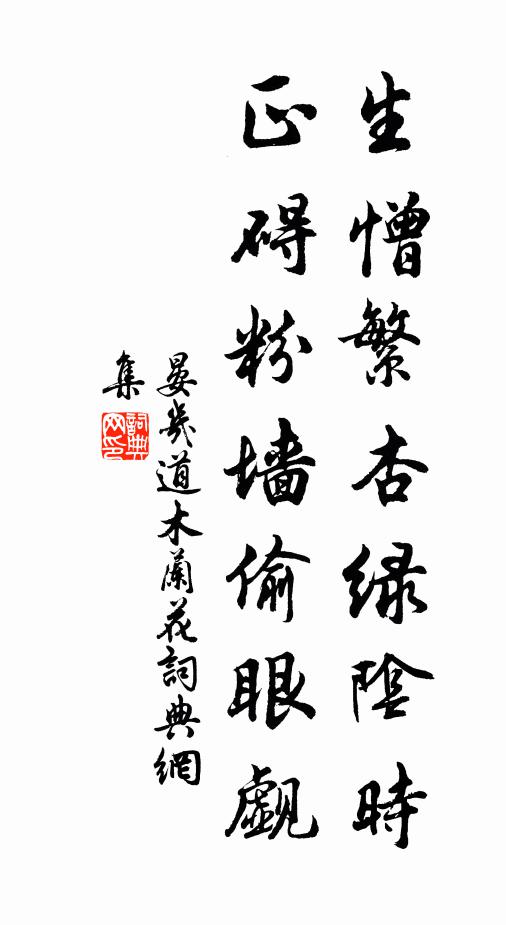 生憎繁杏綠陰時
正碍粉墻偷眼覷
晏幾道木蘭花詞典網
集
詞典
网印